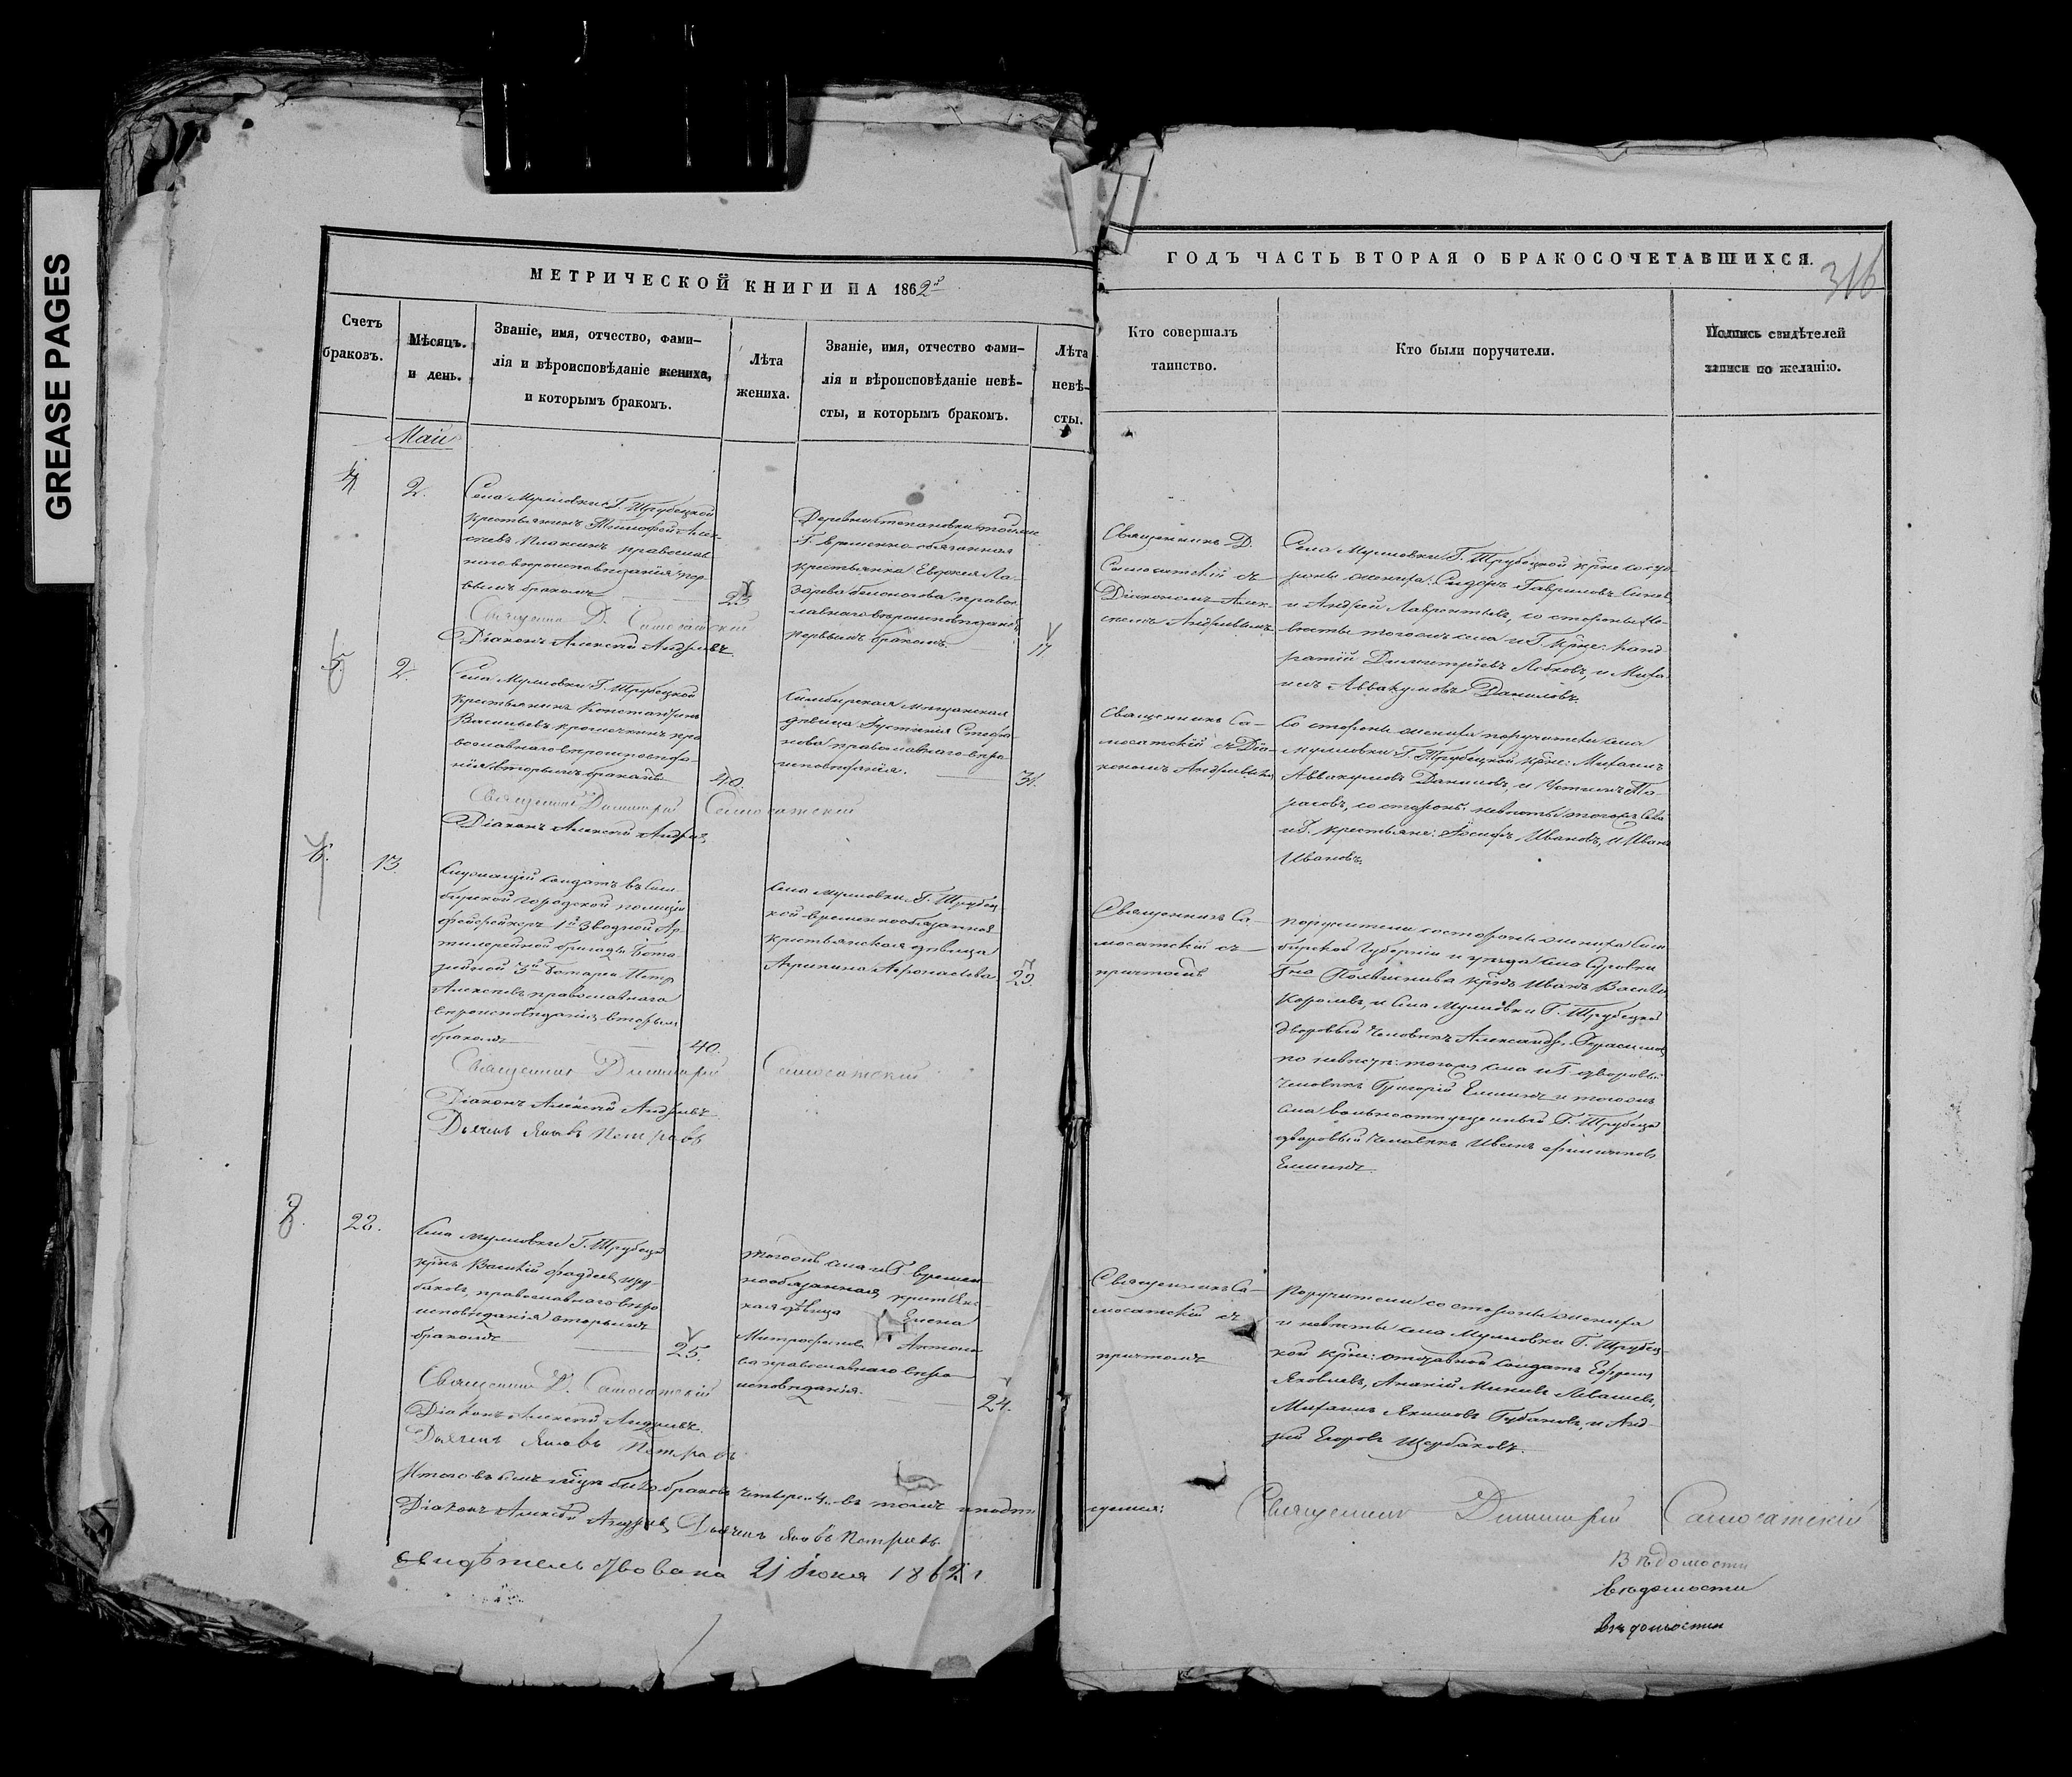 GREASE PAGES
МЕТРИЧЕСКОЙ КНИГИ НА 1862й
ГОДЪ ЧАСТЬ ВТОРАЯ О БРАКОСОЧЕТАВШИХСЯ.
316
Счетъ
браковъ.
Мѣсяцъ.
и день.
Званіе, имя, отчество, фами-
лія и вѣроисповѣданіе жениха,
и которымъ бракомъ.
Лѣта
жениха.
Званіе, имя, отчество фами-
лія и вѣроисповѣданіе невѣ-
сты, и которымъ бракомъ.
Лѣта
невѣ-
сты.
Кто совершалъ
таинство.
Кто были поручители.
Подпись свидѣтелей
записи по желанію.
Май
4
2.
Села Муловки Г. Трубецкой
крестьянинъ Тимофей Алек-
сѣевъ Плаксинъ православ
наго вѣроисповѣданія пер-
вымъ бракомъ
23
Священникъ Д. Самосатскій
Діаконъ Алексѣй Андреевъ.
Деревни Степановки тойже
Г. временно-обязанная
крестьянка Евдокія Ла-
зарева православнаго вѣроисповѣданія
первымъ бракомъ.
17
Священникъ Д.
Самосатскій съ
Діакономъ Алек-
сѣемъ Андреевымъ
Села Муловки Г. Трубецкой крне со сто-
роны жениха: Сидоръ Гавриловъ
и Андрей Лаврентьевъ, со стороны не-
вѣсты тогожъ села и Г. крне: Конд-
ратій Димитріевъ и Миха-
илъ Аввакумовъ Даниловъ.
5.
2.
Села Муловки Г. Трубецкой
крестьянинъ Константинъ
Васильевъ пра
вославнаго вѣроисповѣда-
нія вторымъ бракомъ
40.
Священникъ Димитрій Самосатскій
Діаконъ Алексѣй Андреев
Симбирская мѣщанская
дѣвица Іустинія Стефа-
нова православнаго вѣро
исповѣданія.
31.
Священникъ Са-
мосатскій съ Діа-
кономъ Андреевымъ
Со стороны жениха поручители села
Муловки Г. Трубецкой крне: Михаилъ
Аввакумовъ Даниловъ, и Устинъ Та-
расовъ, со стороны невѣсты тогожъ села
и Г. крестьяне: Іосифъ Ивановъ, и Иванъ
Ивановъ.
6.
13.
Служащій солдатъ въ Сим-
бирской городской полиціи
фейерверкеръ 1й Зводной Ар-
тилерійной бригады Бата
рейной 3й Батареи Петр
Алексѣевъ православнаго
вѣроисповѣданія вторымъ
бракомъ
40.
Священникъ Димитрій Самосатскій
Діаконъ Алексѣй Андреевъ
Дьячекъ Яковъ Петровъ
Села Муловки Г. Трубец-
кой временнообязанная
крестьянская дѣвица
Агрипина Афонасьева
22.
Священникъ Са-
мосатскій съ
причтомъ
Поручители со стороны жениха Сим-
бирской Губерніи и уѣзда села
крнъ Иванъ Васильев
Королевъ, и села Муловки Г. Трубецкой
дворовый человѣкъ Александръ Герасимов
по невѣстѣ: тогожъ села и Г. дворовый
человѣкъ Григорій Елшинъ и тогожъ
села вольноотпущенный Г. Трубецкой
дворовый человѣкъ
Елшинъ.
7.
22.
Села Муловки Г. Трубецкой
крнъ Василій Фадеевъ
православнаго вѣро
исповѣданія вторымъ
бракомъ
25.
Священникъ Д. Самосатскій
Діаконъ Алексѣй Андреевъ.
Дьячекъ Яковъ Петровъ
Тогожъ села и Г. времен-
нообязанная крестьянс-
кая дѣвица Елена
Митрофанова Антоно
ва православнаго вѣро
исповѣданія.
24.
Священникъ Са-
мосатскій съ
причтомъ
Поручители со стороны жениха
и невѣсты села Муловки Г. Трубец-
кой крне: отставной солдатъ Ефремъ
Яковлевъ, Ананій Левашевъ,
Михаилъ Якимовъ Губановъ, и Анд-
рей Егоровъ Щербаковъ.
Итого въ семъ было браковъ четыре 4. въ томъ и подпи
суемся: Священникъ Димитрій Самосатскій
Діаконъ Алексѣй Андреевъ Дьячекъ Яковъ Петровъ
Свидѣтельствована 21 Іюня 1862 г.
Вѣдомости
Вѣдомости
Вѣдомости